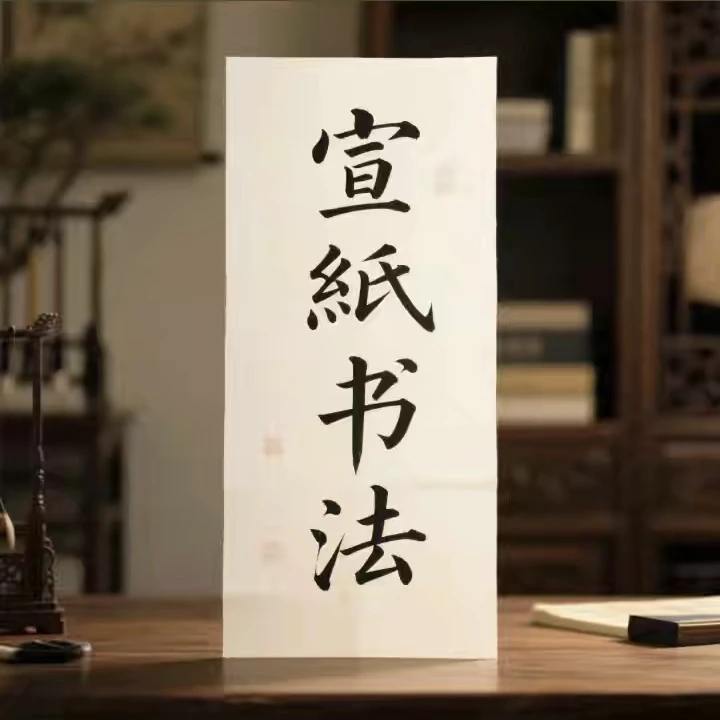 宣紙书法